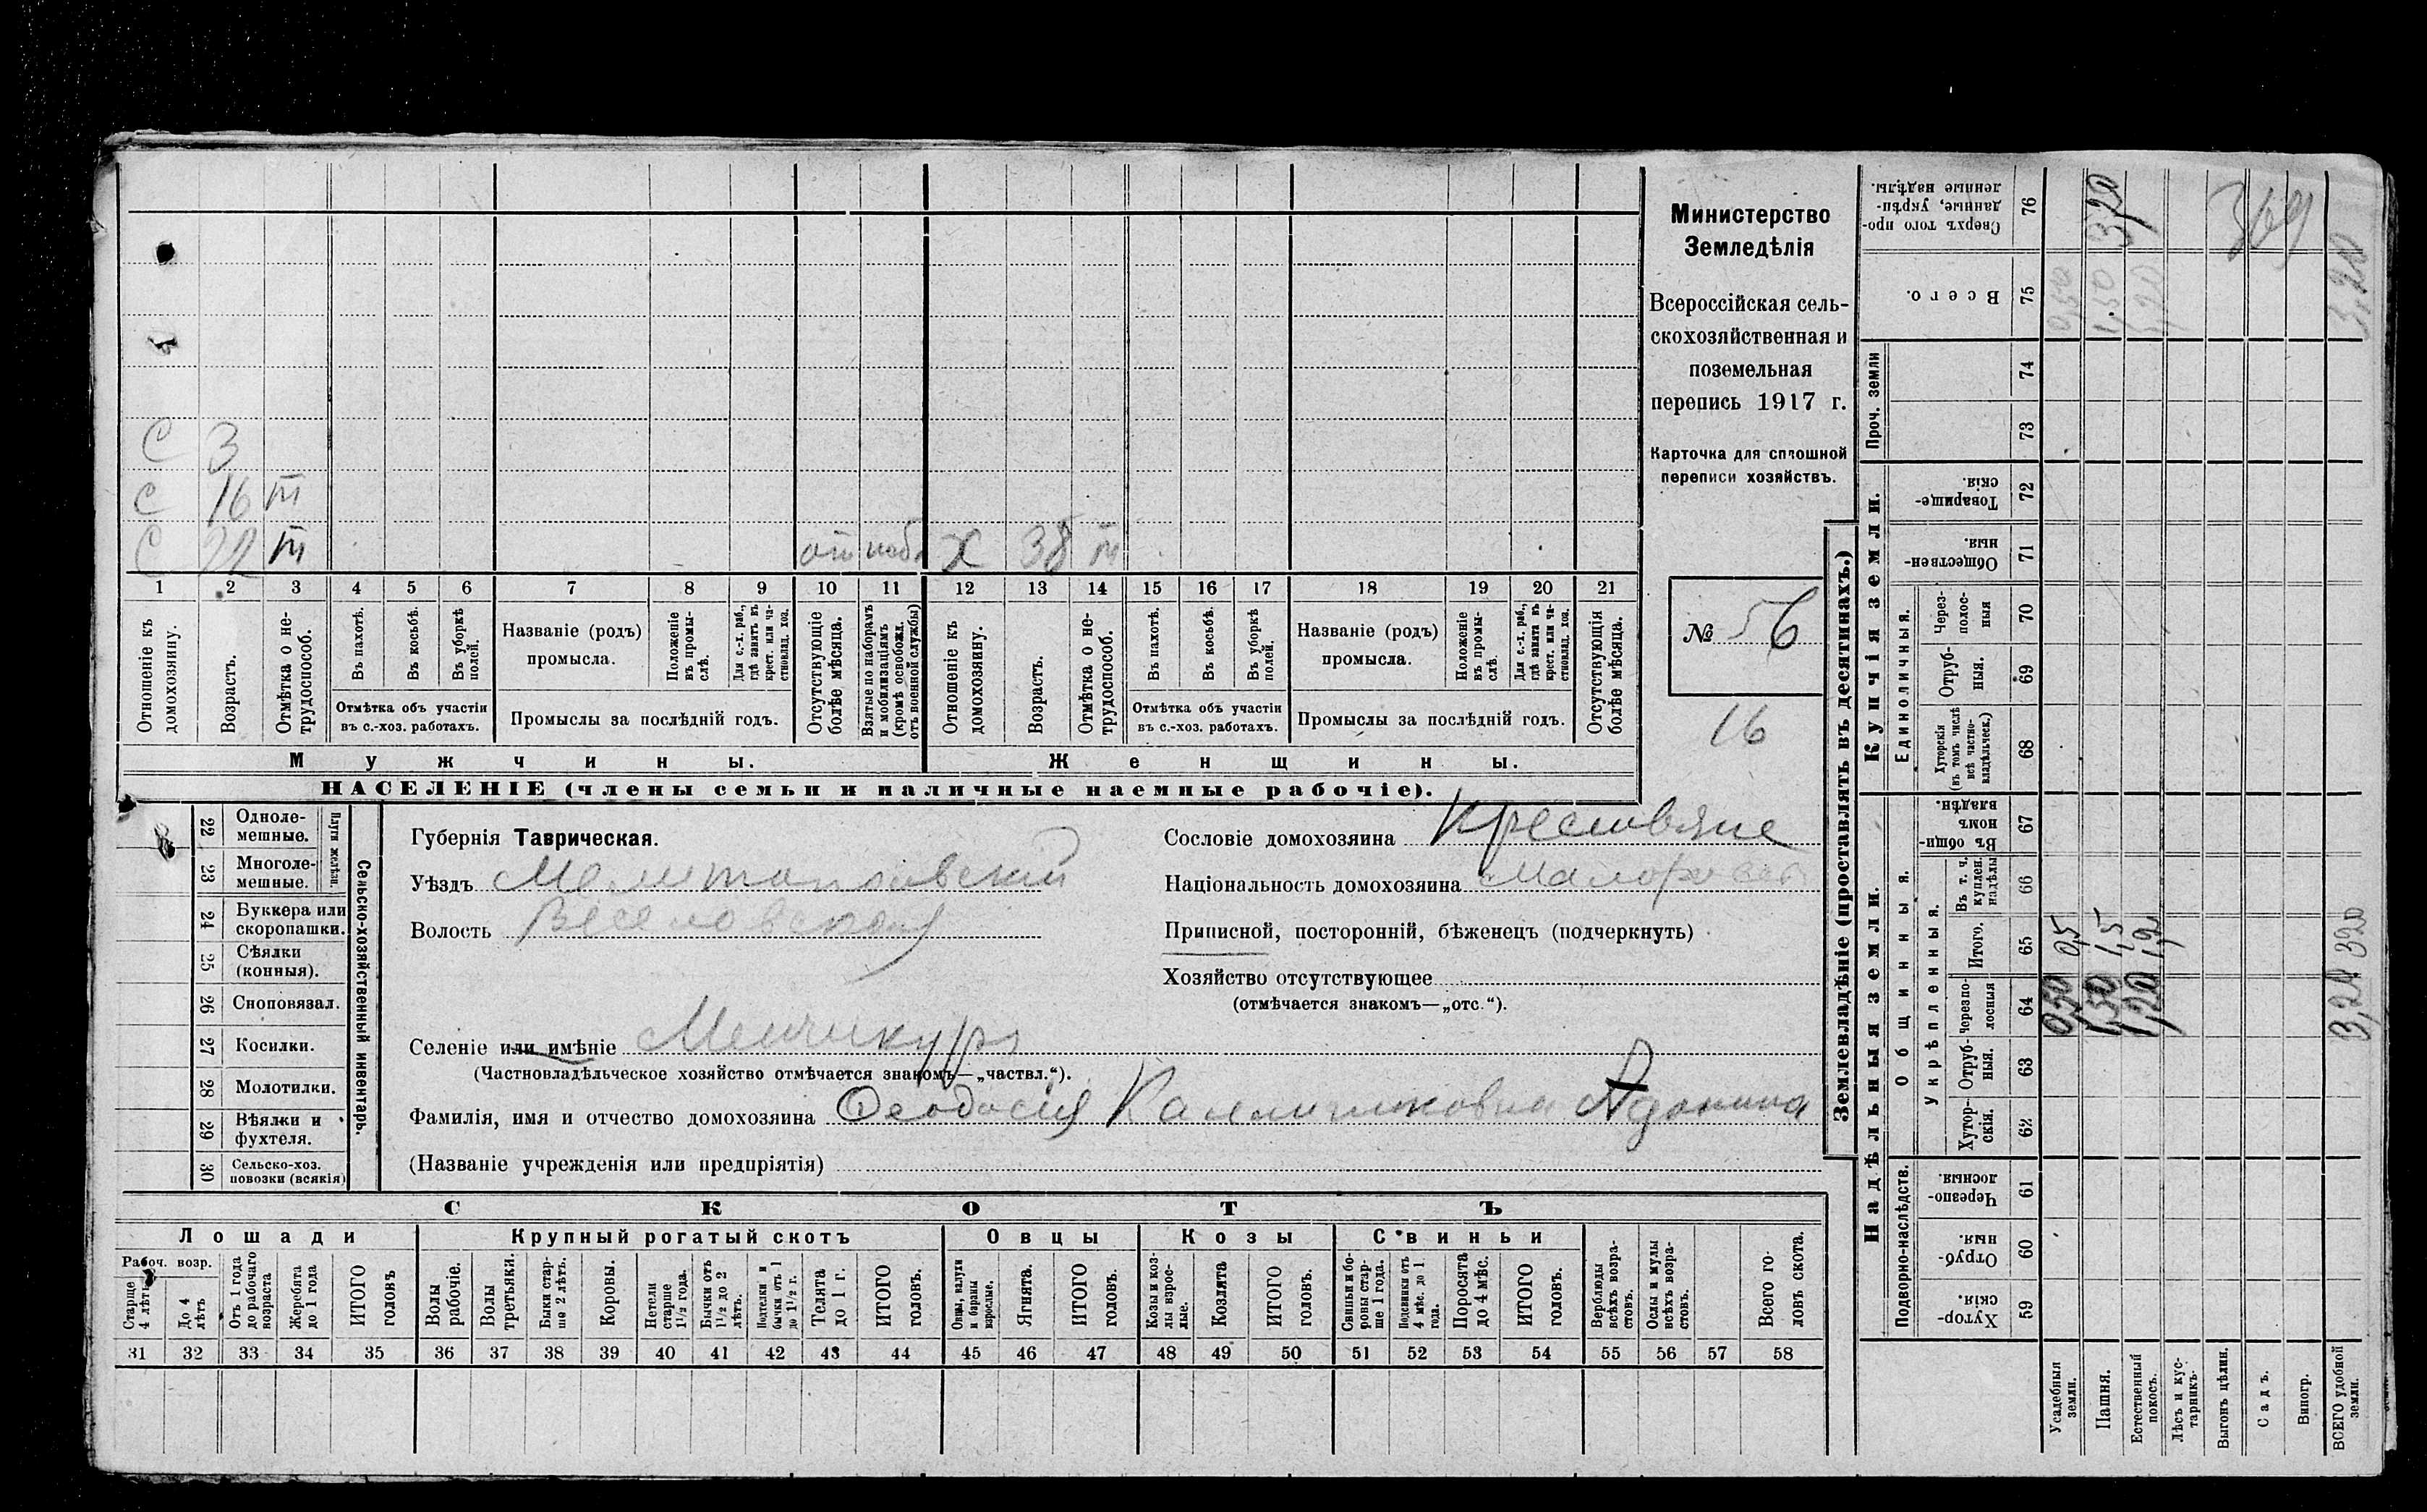 Министерство
Земледѣлія
Всероссійская сель-
скохозяйственная и
поземельная
перепись 1917 г.
Карточка для сплошной
переписи хозяйствъ.
№ 56
16
С 3
С 16 т
С 22 т от наб Х 38 т
1 2 3 4 5 6 7 8 9 10 11 12 13 14 15 16 17 18 19 20 21
Отношеніе къ домохозяину.
Возрастъ.
Отмѣтка о не-трудоспособ.
Въ пахотѣ.
Въ косьбѣ.
Въ уборкѣ полей.
Отмѣтка объ участіи
въ с.-хоз. работахъ.
Названіе (родъ)
промысла.
Положеніе въ промы-слѣ.
Для с.-х. раб., гдѣ занятъ въ крест. или ча-стновлад. хоз.
Промыслы за послѣдній годъ.
Отсутствующіе болѣе мѣсяца.
Взятые по наборамъ и мобилизаціямъ (кромѣ освобожд. отъ военной службы)
Отношеніе къ домохозяину.
Возрастъ.
Отмѣтка о не-трудоспособ.
Въ пахотѣ.
Въ косьбѣ.
Въ уборкѣ полей.
Отмѣтка объ участіи
въ с.-хоз. работахъ.
Названіе (родъ)
промысла.
Положеніе въ промы-слѣ.
Для с.-х. раб., гдѣ занята въ крест. или ча-стновлад. хоз.
Промыслы за послѣдній годъ.
Отсутствующія болѣе мѣсяца.
Мужчины.
Женщины.
НАСЕЛЕНІЕ (члены семьи и наличные наемные рабочіе).
22 Одноле-мешные.
23 Многоле-мешные.
Плуги желѣзн.
24 Буккера или скоропашки.
25 Сѣялки (конныя).
26 Сноповязал.
27 Косилки.
28 Молотилки.
29 Вѣялки и фухтеля.
30 Сельско-хоз. повозки (всякія)
Сельско-хозяйственный инвентарь.
Губернія Таврическая.
Уѣздъ Мелитопольскій
Волость Веселовская
Селеніе или имѣніе Менчикуръ
(Частновладѣльческое хозяйство отмѣчается знакомъ—„частвл.“).
Фамилія, имя и отчество домохозяина Феодосія
(Названіе учрежденія или предпріятія)
Сословіе домохозяина Крестьяне
Національность домохозяина Малоросъ
Приписной, посторонній, бѣженецъ (подчеркнуть)
Хозяйство отсутствующее
(отмѣчается знакомъ—„отс.“).
СКОТЪ
Лошади
Крупный рогатый скотъ
Овцы
Козы
Свиньи
Рабоч. возр.
Старше 4 лѣтъ
До 4 лѣтъ
Отъ 1 года до рабочаго возраста
Жеребята до 1 года
ИТОГО головъ
Волы рабочіе.
Волы третьяки.
Быки стар-ше 2 лѣтъ.
Коровы.
Нетели старше 1½ года.
Бычки отъ 1½ до 2 лѣтъ.
Подтелки и бычки отъ 1 до 1½ г.
Телята до 1 г.
ИТОГО головъ.
Овцы, валухи и бараны взрослые.
Ягнята.
ИТОГО головъ.
Козы и коз-лы взрос-лые.
Козлята
ИТОГО головъ.
Свиньи и бо-ровы стар-ше 1 года.
Подсвинки отъ 4 мѣс. до 1 года.
Поросята до 4 мѣс.
ИТОГО головъ.
Верблюды всѣхъ возра-стовъ.
Ослы и мулы всѣхъ возра-стовъ.
Всего го-ловъ скота.
31 32 33 34 35 36 37 38 39 40 41 42 43 44 45 46 47 48 49 50 51 52 53 54 55 56 57 58
Землевладѣніе (проставлять въ десятинахъ.)
Надѣльныя земли.
Купчія земли.
Проч. земли
Подворно-наслѣдств.
Общинныя.
Укрѣпленныя.
Единоличныя.
Хутор-скія. 59
Отруб-ныя. 60
Черезпо-лосныя 61
Хутор-скія. 62
Отруб-ныя. 63
Черезпо-лосныя 64
Итого. 65
Въ т. ч. куплен. надѣлы 66
Въ общин-номъ владѣн. 67
Хуторскія (въ томъ числѣ всѣ частно-владѣльческ.) 68
Отруб-ныя. 69
Через-полос-ныя 70
Обществен-ныя. 71
Товарище-скія. 72
73
74
Всего. 75
Сверхъ того про-данные, укрѣп-ленные надѣлы. 76
Усадебныя земли. 0,50 0,5 0,50
Пашня. 1,50 1,5 1,50 3,20
Естественный покосъ. 1,20 1,2 1,20
Лѣсъ и кус-тарникъ.
Выгонъ цѣлин.
Садъ.
Виногр.
ВСЕГО удобной земли. 3,20 3,20 3,20
369